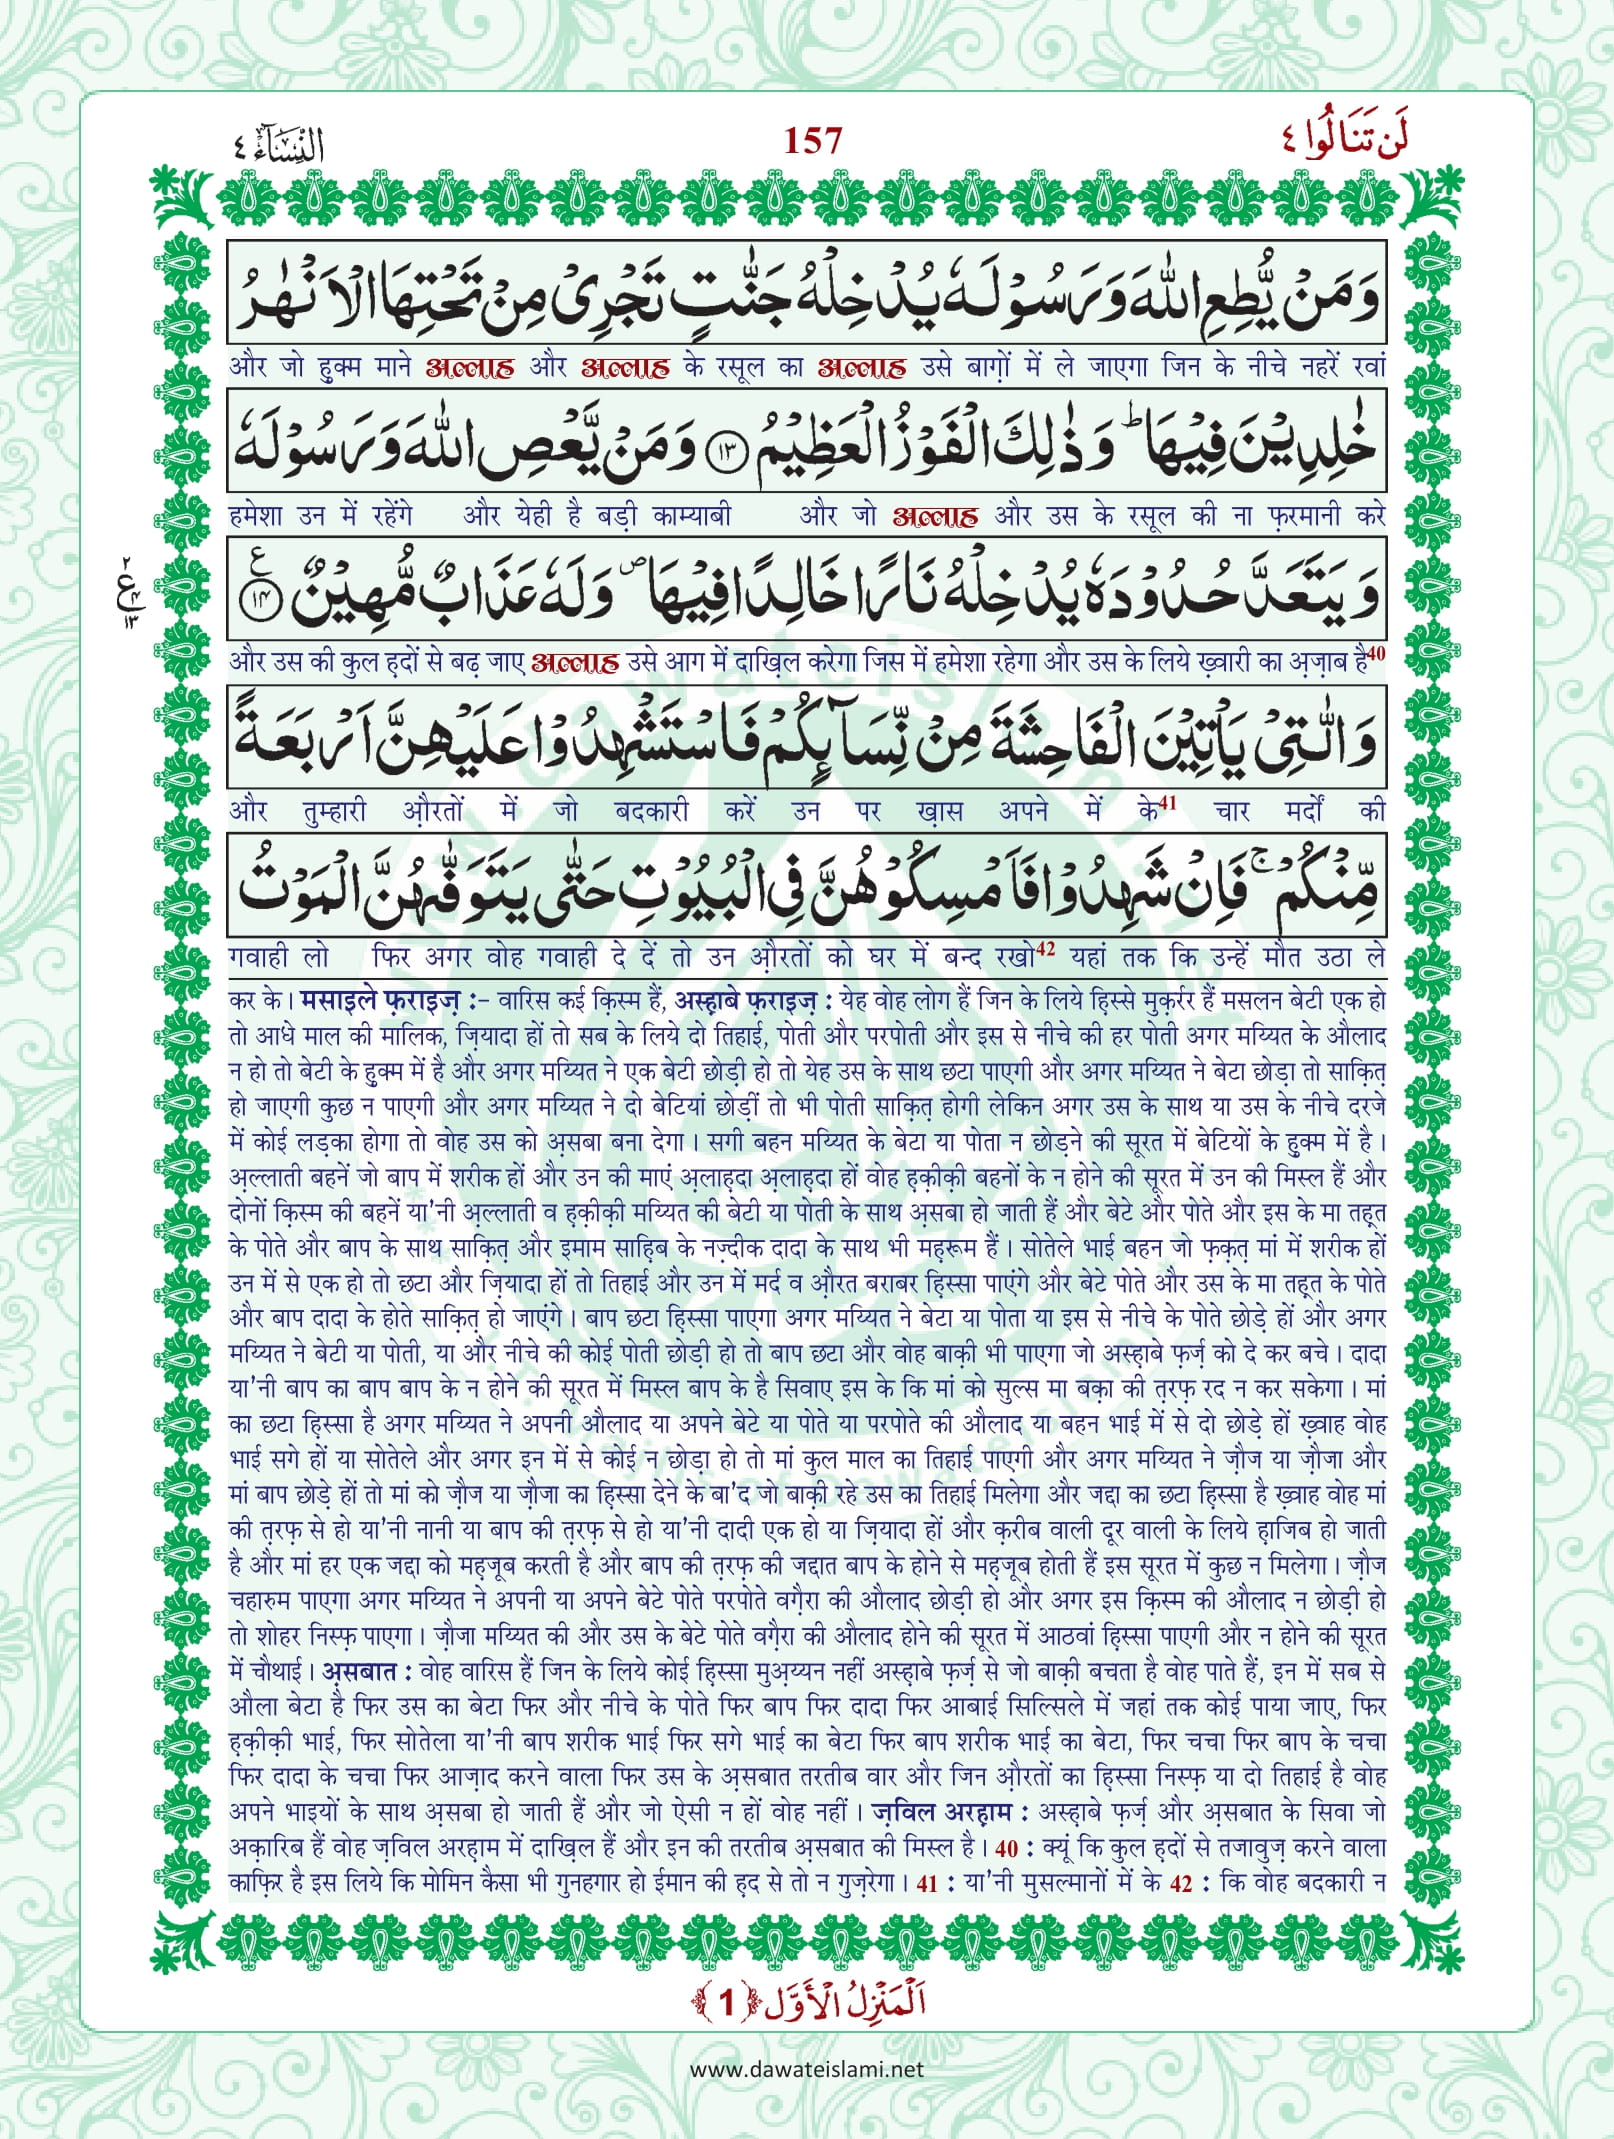 لَنْ تَنَالُوا ٤
157
النِّسَآء ٤
وَ مَنْ یُّطِعِ اللّٰهَ وَ رَسُوْلَهٗ یُدْخِلْهُ جَنّٰتٍ تَجْرِیْ مِنْ تَحْتِهَا الْاَنْهٰرُ
और जो हुक्म माने अल्लाह और अल्लाह के रसूल का अल्लाह उसे बाग़ों में ले जाएगा जिन के नीचे नहरें रवां
خٰلِدِیْنَ فِیْهَاؕ وَ ذٰلِكَ الْفَوْزُ الْعَظِیْمُ ﴿۱۳﴾ وَ مَنْ یَّعْصِ اللّٰهَ وَ رَسُوْلَهٗ
हमेशा उन में रहेंगे और येही है बड़ी काम्याबी और जो अल्लाह और उस के रसूल की ना फ़रमानी करे
وَ یَتَعَدَّ حُدُوْدَهٗ یُدْخِلْهُ نَارًا خَالِدًا فِیْهَا۪ وَ لَهٗ عَذَابٌ مُّهِیْنٌ ﴿۱۴﴾ ع
ع ۲ ۴ ۱۳
और उस की कुल ह़दों से बढ़ जाए अल्लाह उसे आग में दाख़िल करेगा जिस में हमेशा रहेगा और उस के लिये ख़्वारी का अ़ज़ाब है40
وَ الّٰتِیْ یَاْتِیْنَ الْفَاحِشَةَ مِنْ نِّسَآىٕكُمْ فَاسْتَشْهِدُوْا عَلَیْهِنَّ اَرْبَعَةً
और तुम्हारी औ़रतों में जो बदकारी करें उन पर ख़ास अपने में के41 चार मर्दों की
مِّنْكُمْۚ فَاِنْ شَهِدُوْا فَاَمْسِكُوْهُنَّ فِی الْبُیُوْتِ حَتّٰى یَتَوَفّٰىهُنَّ الْمَوْتُ
गवाही लो फिर अगर वोह गवाही दे दें तो उन औ़रतों को घर में बन्द रखो42 यहां तक कि उन्हें मौत उठा ले
कर के। मसाइले फ़राइज़ :- वारिस कई क़िस्म हैं, अस्ह़ाबे फ़राइज़ : येह वोह लोग हैं जिन के लिये हि़स्से मुक़र्रर हैं मसलन बेटी एक हो
तो आधे माल की मालिक, ज़ियादा हों तो सब के लिये दो तिहाई, पोती और परपोती और इस से नीचे की हर पोती अगर मय्यित के औलाद
न हो तो बेटी के हुक्म में है और अगर मय्यित ने एक बेटी छोड़ी हो तो येह उस के साथ छटा पाएगी और अगर मय्यित ने बेटा छोड़ा तो साक़ित़
हो जाएगी कुछ न पाएगी और अगर मय्यित ने दो बेटियां छोड़ीं तो भी पोती साक़ित़ होगी लेकिन अगर उस के साथ या उस के नीचे दरजे
में कोई लड़का होगा तो वोह उस को अ़सबा बना देगा। सगी बहन मय्यित के बेटा या पोता न छोड़ने की सूरत में बेटियों के हुक्म में है।
अ़ल्लाती बहनें जो बाप में शरीक हों और उन की माएं अ़लाह़दा अ़लाह़दा हों वोह ह़क़ीक़ी बहनों के न होने की सूरत में उन की मिस्ल हैं और
दोनों क़िस्म की बहनें या'नी अ़ल्लाती व ह़क़ीक़ी मय्यित की बेटी या पोती के साथ अ़सबा हो जाती हैं और बेटे और पोते और इस के मा तह़त
के पोते और बाप के साथ साक़ित़ और इमाम साह़िब के नज़्दीक दादा के साथ भी मह़रूम हैं। सोतेले भाई बहन जो फ़क़त़ मां में शरीक हों
उन में से एक हो तो छटा और ज़ियादा हों तो तिहाई और उन में मर्द व औ़रत बराबर हि़स्सा पाएंगे और बेटे पोते और उस के मा तह़त के पोते
और बाप दादा के होते साक़ित़ हो जाएंगे। बाप छटा हि़स्सा पाएगा अगर मय्यित ने बेटा या पोता या इस से नीचे के पोते छोड़े हों और अगर
मय्यित ने बेटी या पोती, या और नीचे की कोई पोती छोड़ी हो तो बाप छटा और वोह बाक़ी भी पाएगा जो अस्ह़ाबे फ़र्ज़ को दे कर बचे। दादा
या'नी बाप का बाप बाप के न होने की सूरत में मिस्ल बाप के है सिवाए इस के कि मां को सुल्स मा बक़ा की त़रफ़ रद न कर सकेगा। मां
का छटा हि़स्सा है अगर मय्यित ने अपनी औलाद या अपने बेटे या पोते या परपोते की औलाद या बहन भाई में से दो छोड़े हों ख़्वाह वोह
भाई सगे हों या सोतेले और अगर इन में से कोई न छोड़ा हो तो मां कुल माल का तिहाई पाएगी और अगर मय्यित ने ज़ौज या ज़ौजा और
मां बाप छोड़े हों तो मां को ज़ौज या ज़ौजा का हि़स्सा देने के बा'द जो बाक़ी रहे उस का तिहाई मिलेगा और जद्दा का छटा हि़स्सा है ख़्वाह वोह मां
की त़रफ़ से हो या'नी नानी या बाप की त़रफ़ से हो या'नी दादी एक हो या ज़ियादा हों और क़रीब वाली दूर वाली के लिये ह़ाजिब हो जाती
है और मां हर एक जद्दा को मह़जूब करती है और बाप की त़रफ़ की जद्दात बाप के होने से मह़जूब होती हैं इस सूरत में कुछ न मिलेगा। ज़ौज
चहारुम पाएगा अगर मय्यित ने अपनी या अपने बेटे पोते परपोते वग़ैरा की औलाद छोड़ी हो और अगर इस क़िस्म की औलाद न छोड़ी हो
तो शोहर निस्फ़ पाएगा। ज़ौजा मय्यित की और उस के बेटे पोते वग़ैरा की औलाद होने की सूरत में आठवां हि़स्सा पाएगी और न होने की सूरत
में चौथाई। अ़सबात : वोह वारिस हैं जिन के लिये कोई हि़स्सा मुअ़य्यन नहीं अस्ह़ाबे फ़र्ज़ से जो बाक़ी बचता है वोह पाते हैं, इन में सब से
औला बेटा है फिर उस का बेटा फिर और नीचे के पोते फिर बाप फिर दादा फिर आबाई सिल्सिले में जहां तक कोई पाया जाए, फिर
ह़क़ीक़ी भाई, फिर सोतेला या'नी बाप शरीक भाई फिर सगे भाई का बेटा फिर बाप शरीक भाई का बेटा, फिर चचा फिर बाप के चचा
फिर दादा के चचा फिर आज़ाद करने वाला फिर उस के अ़सबात तरतीब वार और जिन औ़रतों का हि़स्सा निस्फ़ या दो तिहाई है वोह
अपने भाइयों के साथ अ़सबा हो जाती हैं और जो ऐसी न हों वोह नहीं। ज़विल अरह़ाम : अस्ह़ाबे फ़र्ज़ और अ़सबात के सिवा जो
अक़ारिब हैं वोह ज़विल अरह़ाम में दाख़िल हैं और इन की तरतीब अ़सबात की मिस्ल है। 40 : क्यूं कि कुल ह़दों से तजावुज़ करने वाला
काफ़िर है इस लिये कि मोमिन कैसा भी गुनहगार हो ईमान की ह़द से तो न गुज़रेगा। 41 : या'नी मुसल्मानों में के 42 : कि वोह बदकारी न
اَلْمَنْزِلُ الْاَوَّل ﴿1﴾
www.dawateislami.net